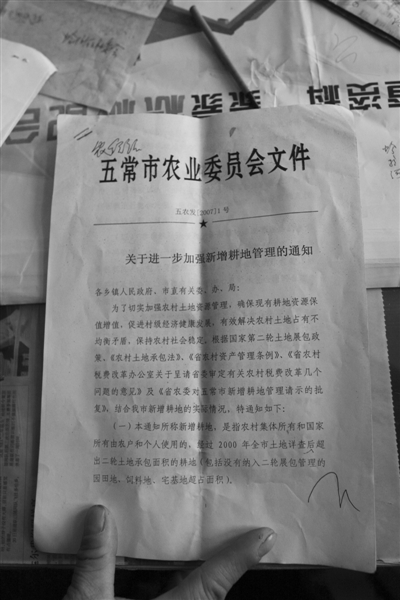 五常市农业委员会文件
五农发[2007]1号
关于进一步加强新增耕地管理的通知
各乡镇人民政府、市直有关委、办、局:
为了切实加强农村土地资源管理，确保现有耕地资源保
值增值，促进村级经济健康发展，有效解决农村土地占有不
均衡矛盾，保持农村社会稳定，根据国家第二轮土地展包政
策、《农村土地承包法》、《省农村资产管理条例》、《省农村
税费改革办公室关于呈请省委审定有关农村税费改革几个
问题的意见》及《省农委对五常市新增耕地管理请示的批
复》，结合我市新增耕地的实际情况，特通知如下:
(一)本通知所称新增耕地，是指农村集体所有和国家
所有由农户和个人使用的，经过2000年全市土地详查后超
出二轮土地承包面积的耕地(包括没有纳入二轮展包管理的
园田地、饲料地、宅基地超占面积)。